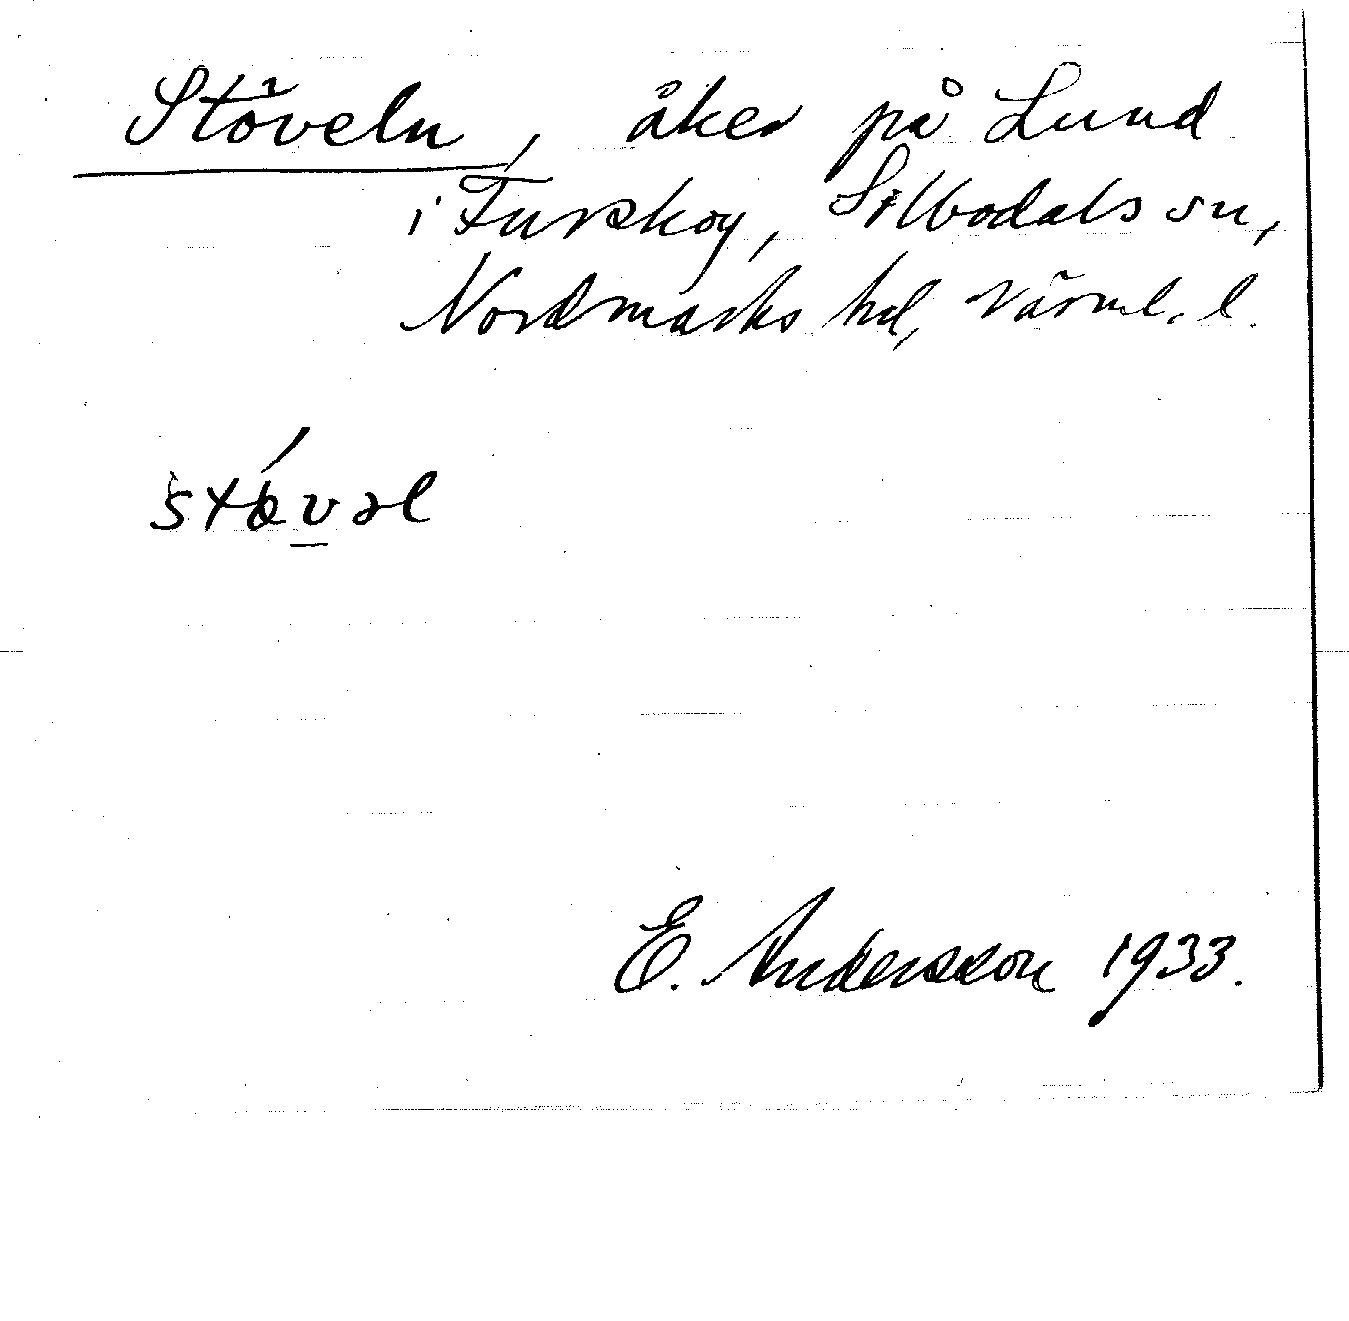 Stöveln, åker på Lund
i Furskog, Silbodals sn,
Nordmarks hd, Värml. l.
E. Andersson 1933.